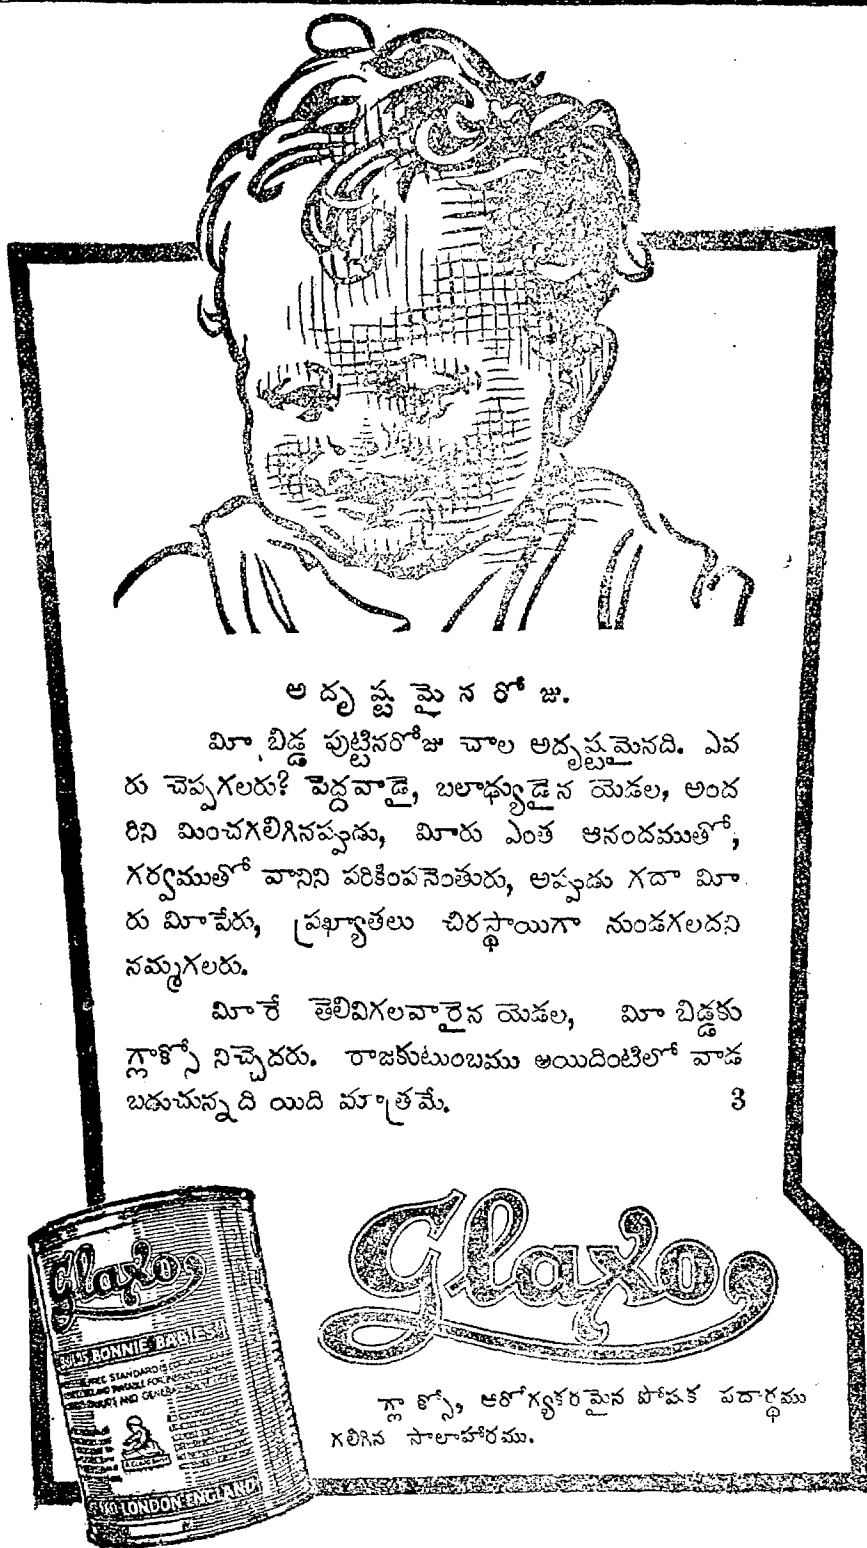 అ దృ ష్ట మై న రో జు.
మీ బిడ్డ పుట్టినరోజు చాల అదృష్టమైనది. ఎవ
రు చెప్పగలరు? పెద్దవాడై, బలాఢ్యుడైన యెడల, అంద
రిని మించగలిగినప్పుడు, మీరు ఎంత ఆనందముతో,
గర్వముతో వానిని పరికింపనెంతురు, అప్పుడు గదా మీ
రు మీపేరు, ప్రఖ్యాతలు చిరస్థాయిగా నుండగలదని
నమ్మగలరు.
మీరే తెలివిగలవారైన యెడల, మీ బిడ్డకు
గ్లాక్సో నిచ్చెదరు. రాజకుటుంబము అయిదింటిలో వాడ
బడుచున్నది యిది మాత్రమే. 3
Glaxo
Glaxo
BONNIE BABIES
STANDARD
AND GENERAL
LONDON ENGLAND
గ్లాక్సో, ఆరోగ్యకరమైన పోషక పదార్థము
గలిగిన సాలాహారము.